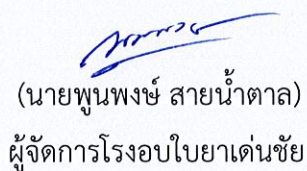 (นายพูนพงษ์ สายน้ำตาล)
ผู้จัดการโรงอบใบยาเด่นชัย